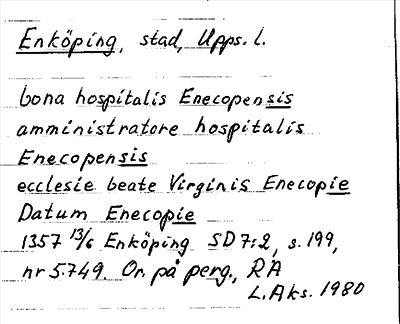 Enköping, stad, Upps. l.
bona hospitalis Enecopensis
amministratore hospitalis
Enecopensis
ecclesie beate Virginis Enecopie
Datum Enecopie
1357 13/6 Enköping SD 7:2, s. 199,
nr 5.749. Or. på perg., RA
L. Aks. 1980